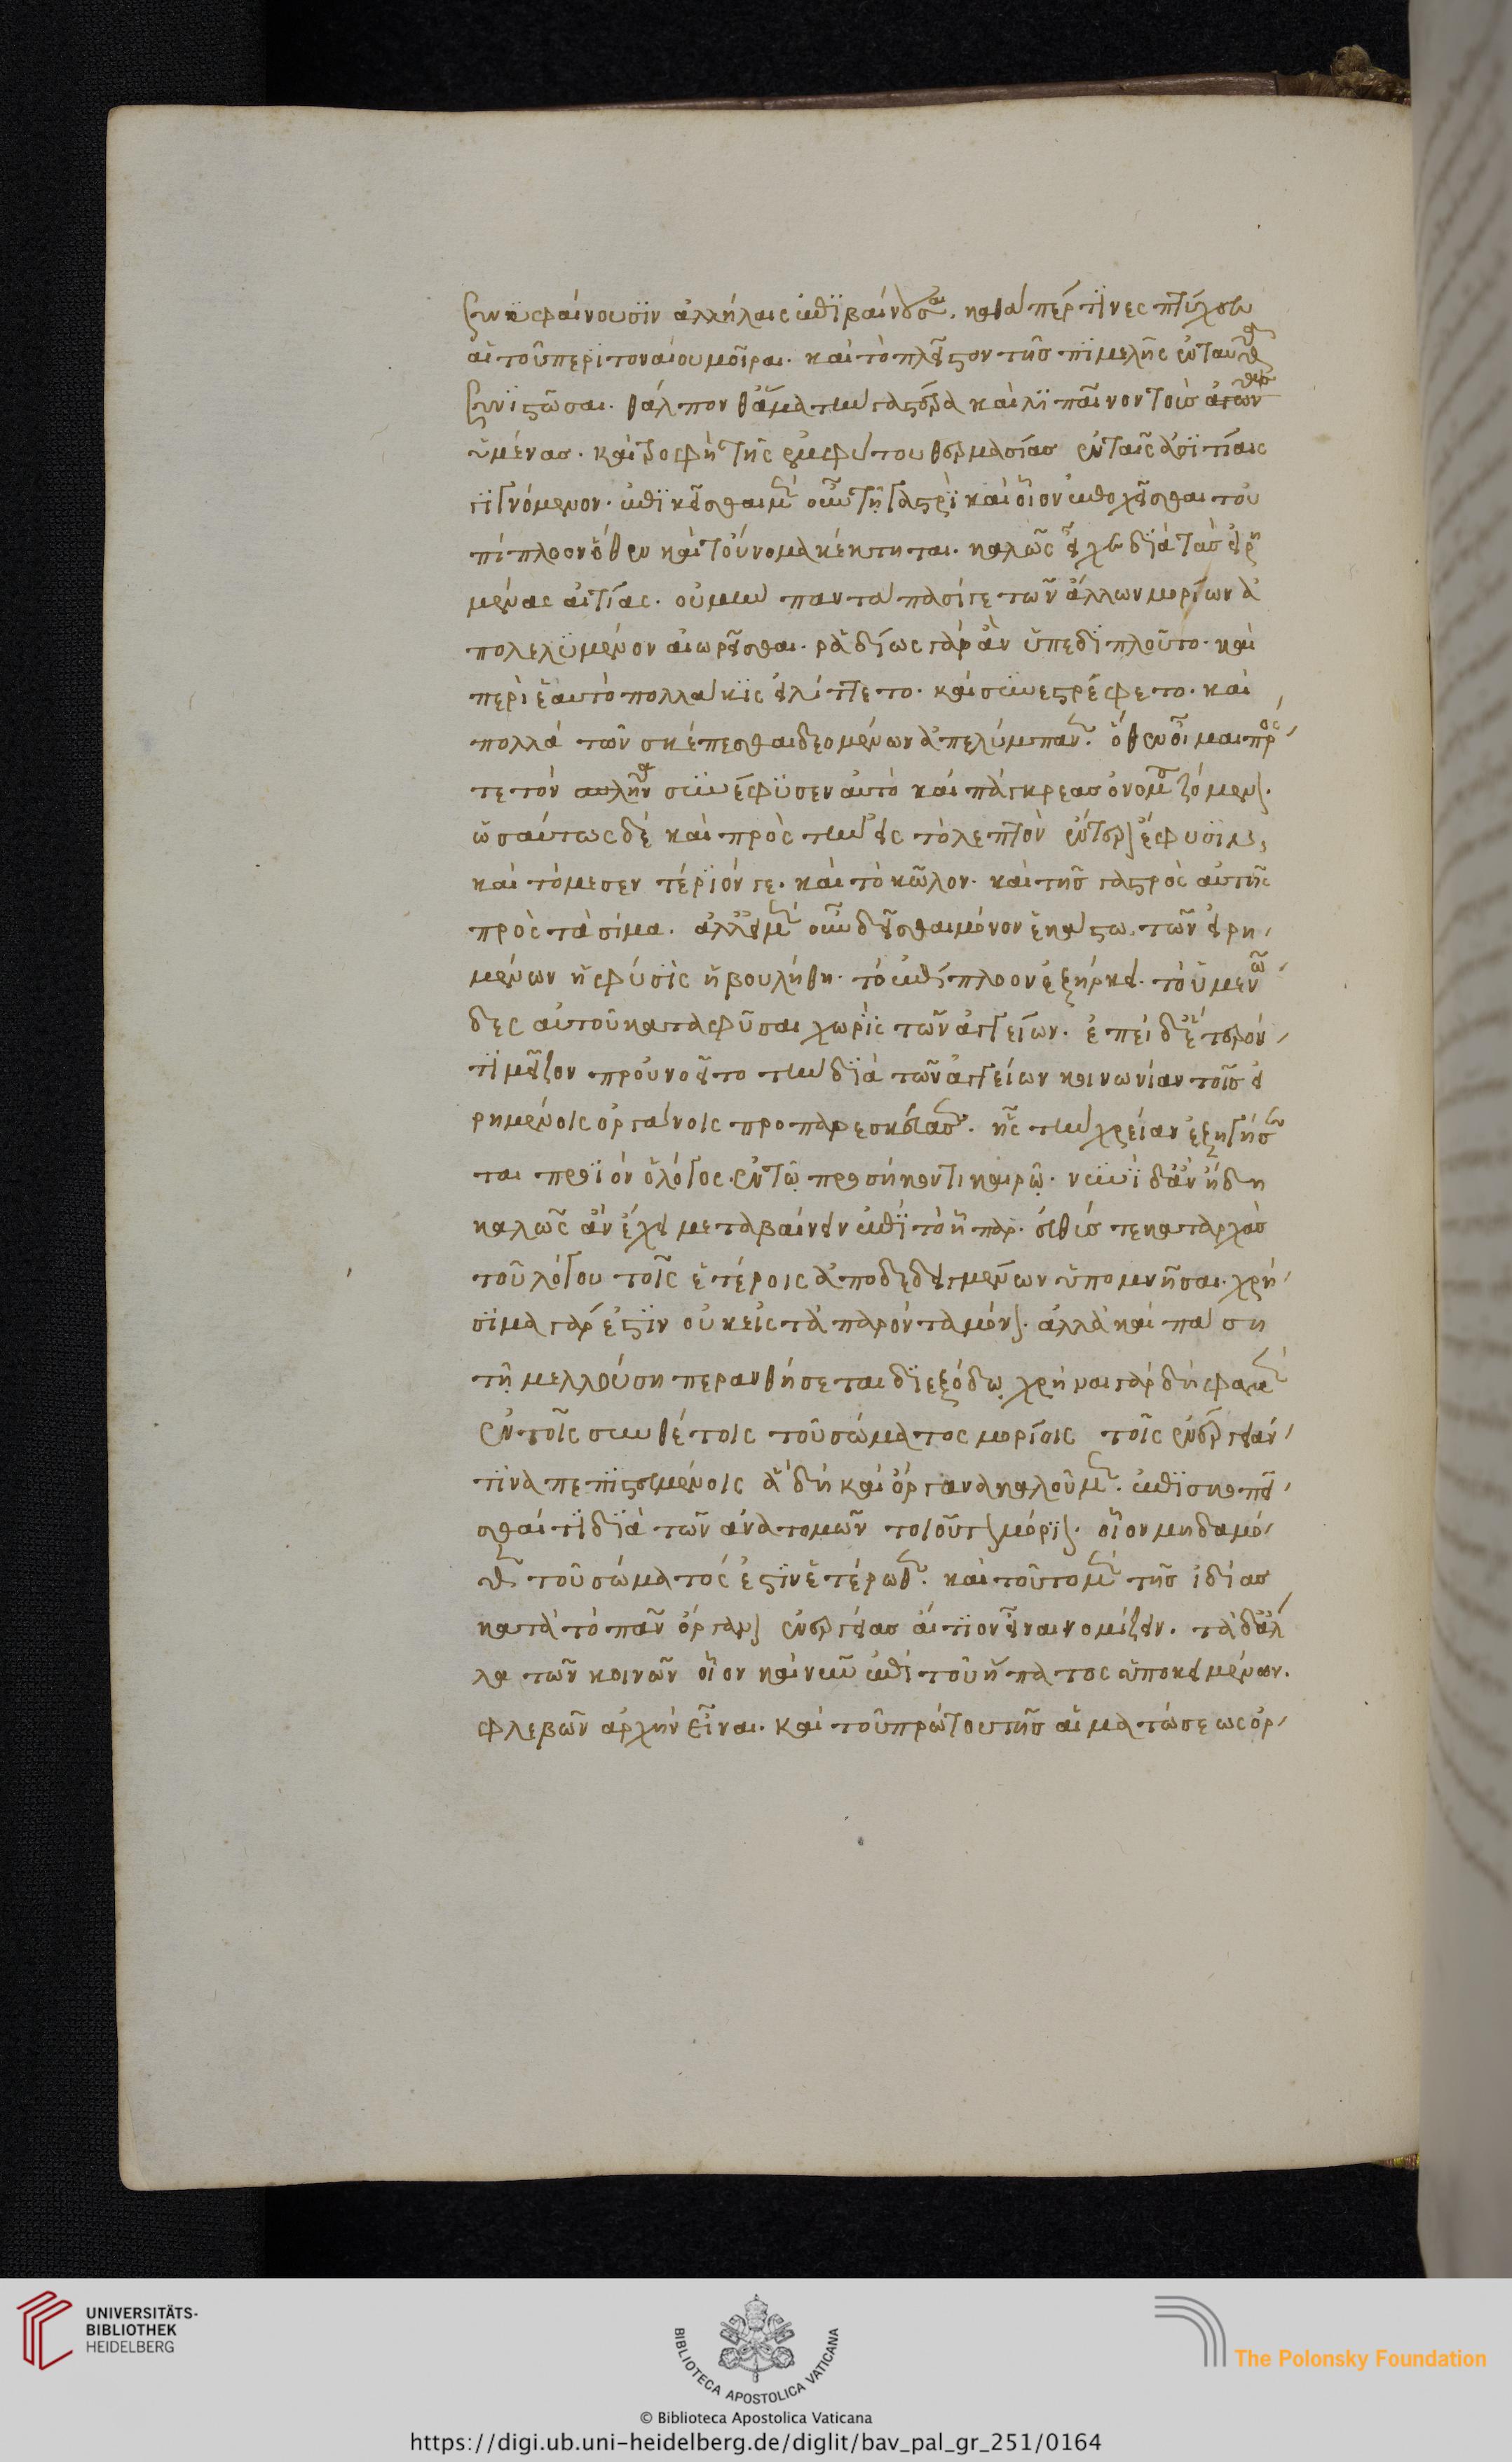 ζωικεφαίνουσιν ἀλλήλαις ἐπιβαίνουσαι. καθάπέρ τινες πτύχες
αἱ τοῦ περιτοναίου μοῖραι. καὶ τὸ πλεῖστον τῆς πιμελῆς ἐνταῦθα
συνιστῶσαι. θάλπον θ' ἅμα τὴν γαστέρα καὶ λιπαῖνον τοὺς
ὑμένας. καὶ τροφὴ τῆς ἐμφύτου θερμασίας ἐν ταῖς ἀσιτίαις
γιγνόμενον. ἐπικεῖσθαι μὲν οὖν τῇ γαστρὶ καὶ οἷον ἐποχεῖσθαι τὸ ἐ
πίπλοον ὅθεν καὶ τοὔνομα κέκτηται. καλῶς εἶχε διὰ τὰς εἰρη
μένας αἰτίας. οὐ μὴν παντάπασί γε τῶν ἄλλων μορίων ἀ
πολελυμένον αἰωρεῖσθαι. ῥᾳδίως γὰρ ἂν ὑπεδιπλοῦτο. καὶ
περὶ ἑαυτὸ πολλάκις εἱλίττετο. καὶ συνεστρέφετο. καὶ
πολλὰ τῶν σκέπεσθαι δεομένων ἀπελίμπανεν. ὅθεν οἶμαι πρός
τε τὸν σπλῆνα συνέφυσεν αὐτὸ καὶ πάγκρεας ὀνομαζόμενον.
ὡσαύτως δὲ καὶ πρὸς τὴν εἰς τὸ λεπτὸν ἔντερον ἔκφυσιν,
καὶ τὸ μεσεντέριόν γε. καὶ τὸ κῶλον. καὶ τῆς γαστρὸς αὐτῆς
πρὸς τὰ σιμά. ἀλλ' εἰ μὲν οὖν δεῖσθαι μόνον ἑκάστῳ τῶν εἰρη
μένων ἡ φύσις ἠβουλήθη. τὸ ἐπίπλοον ἐξήρκει. τὸ ὑμενῶ
δες αὐτοῦ καταφῦσαι χωρὶς τῶν ἀγγείων. ἐπεὶ δ' ἕτερόν
τι μεῖζον προὐνοεῖτο τὴν διὰ τῶν ἀγγείων κοινωνίαν τοῖς εἰ
ρημένοις ὀργάνοις προπαρεσκεύασεν. ἧς τὴν χρείαν ἐξηγήσε
ται προϊὸν ὁ λόγος. ἐν τῷ προσήκοντι καιρῷ. νυνὶ δ' ἂν ἤδη
καλῶς ἂν ἔχει μεταβαίνειν ἐπὶ τὸ ἧπαρ. εὐθύς τε καταρχὰς
τοῦ λόγου τοῖς ἑτέροις ἀποδεδειγμένων ὑπομνῆσαι. χρή
σιμα γάρ ἐστιν οὐκ εἰς τὰ παρόντα μόνον. ἀλλὰ καὶ πάσῃ
τῇ μελλούσῃ περανθήσεται διεξόδῳ χρῆναι γὰρ δή φαμεν
ἐν τοῖς συνθέτοις τοῦ σώματος μορίοις τοῖς ἐνέργειάν
τινα πεπιστευμένοις ἃ δὴ καὶ ὄργανα καλοῦμεν. ἐπισκοπεῖ
σθαί τι διὰ τῶν ἀνατομῶν τοιοῦτον μόριον. οἷον μηδαμό
θι τοῦ σώματός ἐστιν ἑτέρωθι. καὶ τοῦτο μὲν τῆς ἰδίας
κατὰ τὸ πᾶν ὄργανον ἐνεργείας αἴτιον εἶναι νομίζειν. τὰ δ' ἄλ
λα τῶν κοινῶν οἷον καὶ νῦν ἐπὶ τοῦ ἥπατος ὑποκειμένων.
φλεβῶν ἀρχὴν εἶναι. καὶ τοῦ πρώτου τῆς αἱματώσεως ὀρ
UNIVERSITÄTS-
BIBLIOTHEK
HEIDELBERG
BIBLIOTECA APOSTOLICA VATICANA
The Polonsky Foundation
© Biblioteca Apostolica Vaticana
https://digi.ub.uni-heidelberg.de/diglit/bav_pal_gr_251/0164